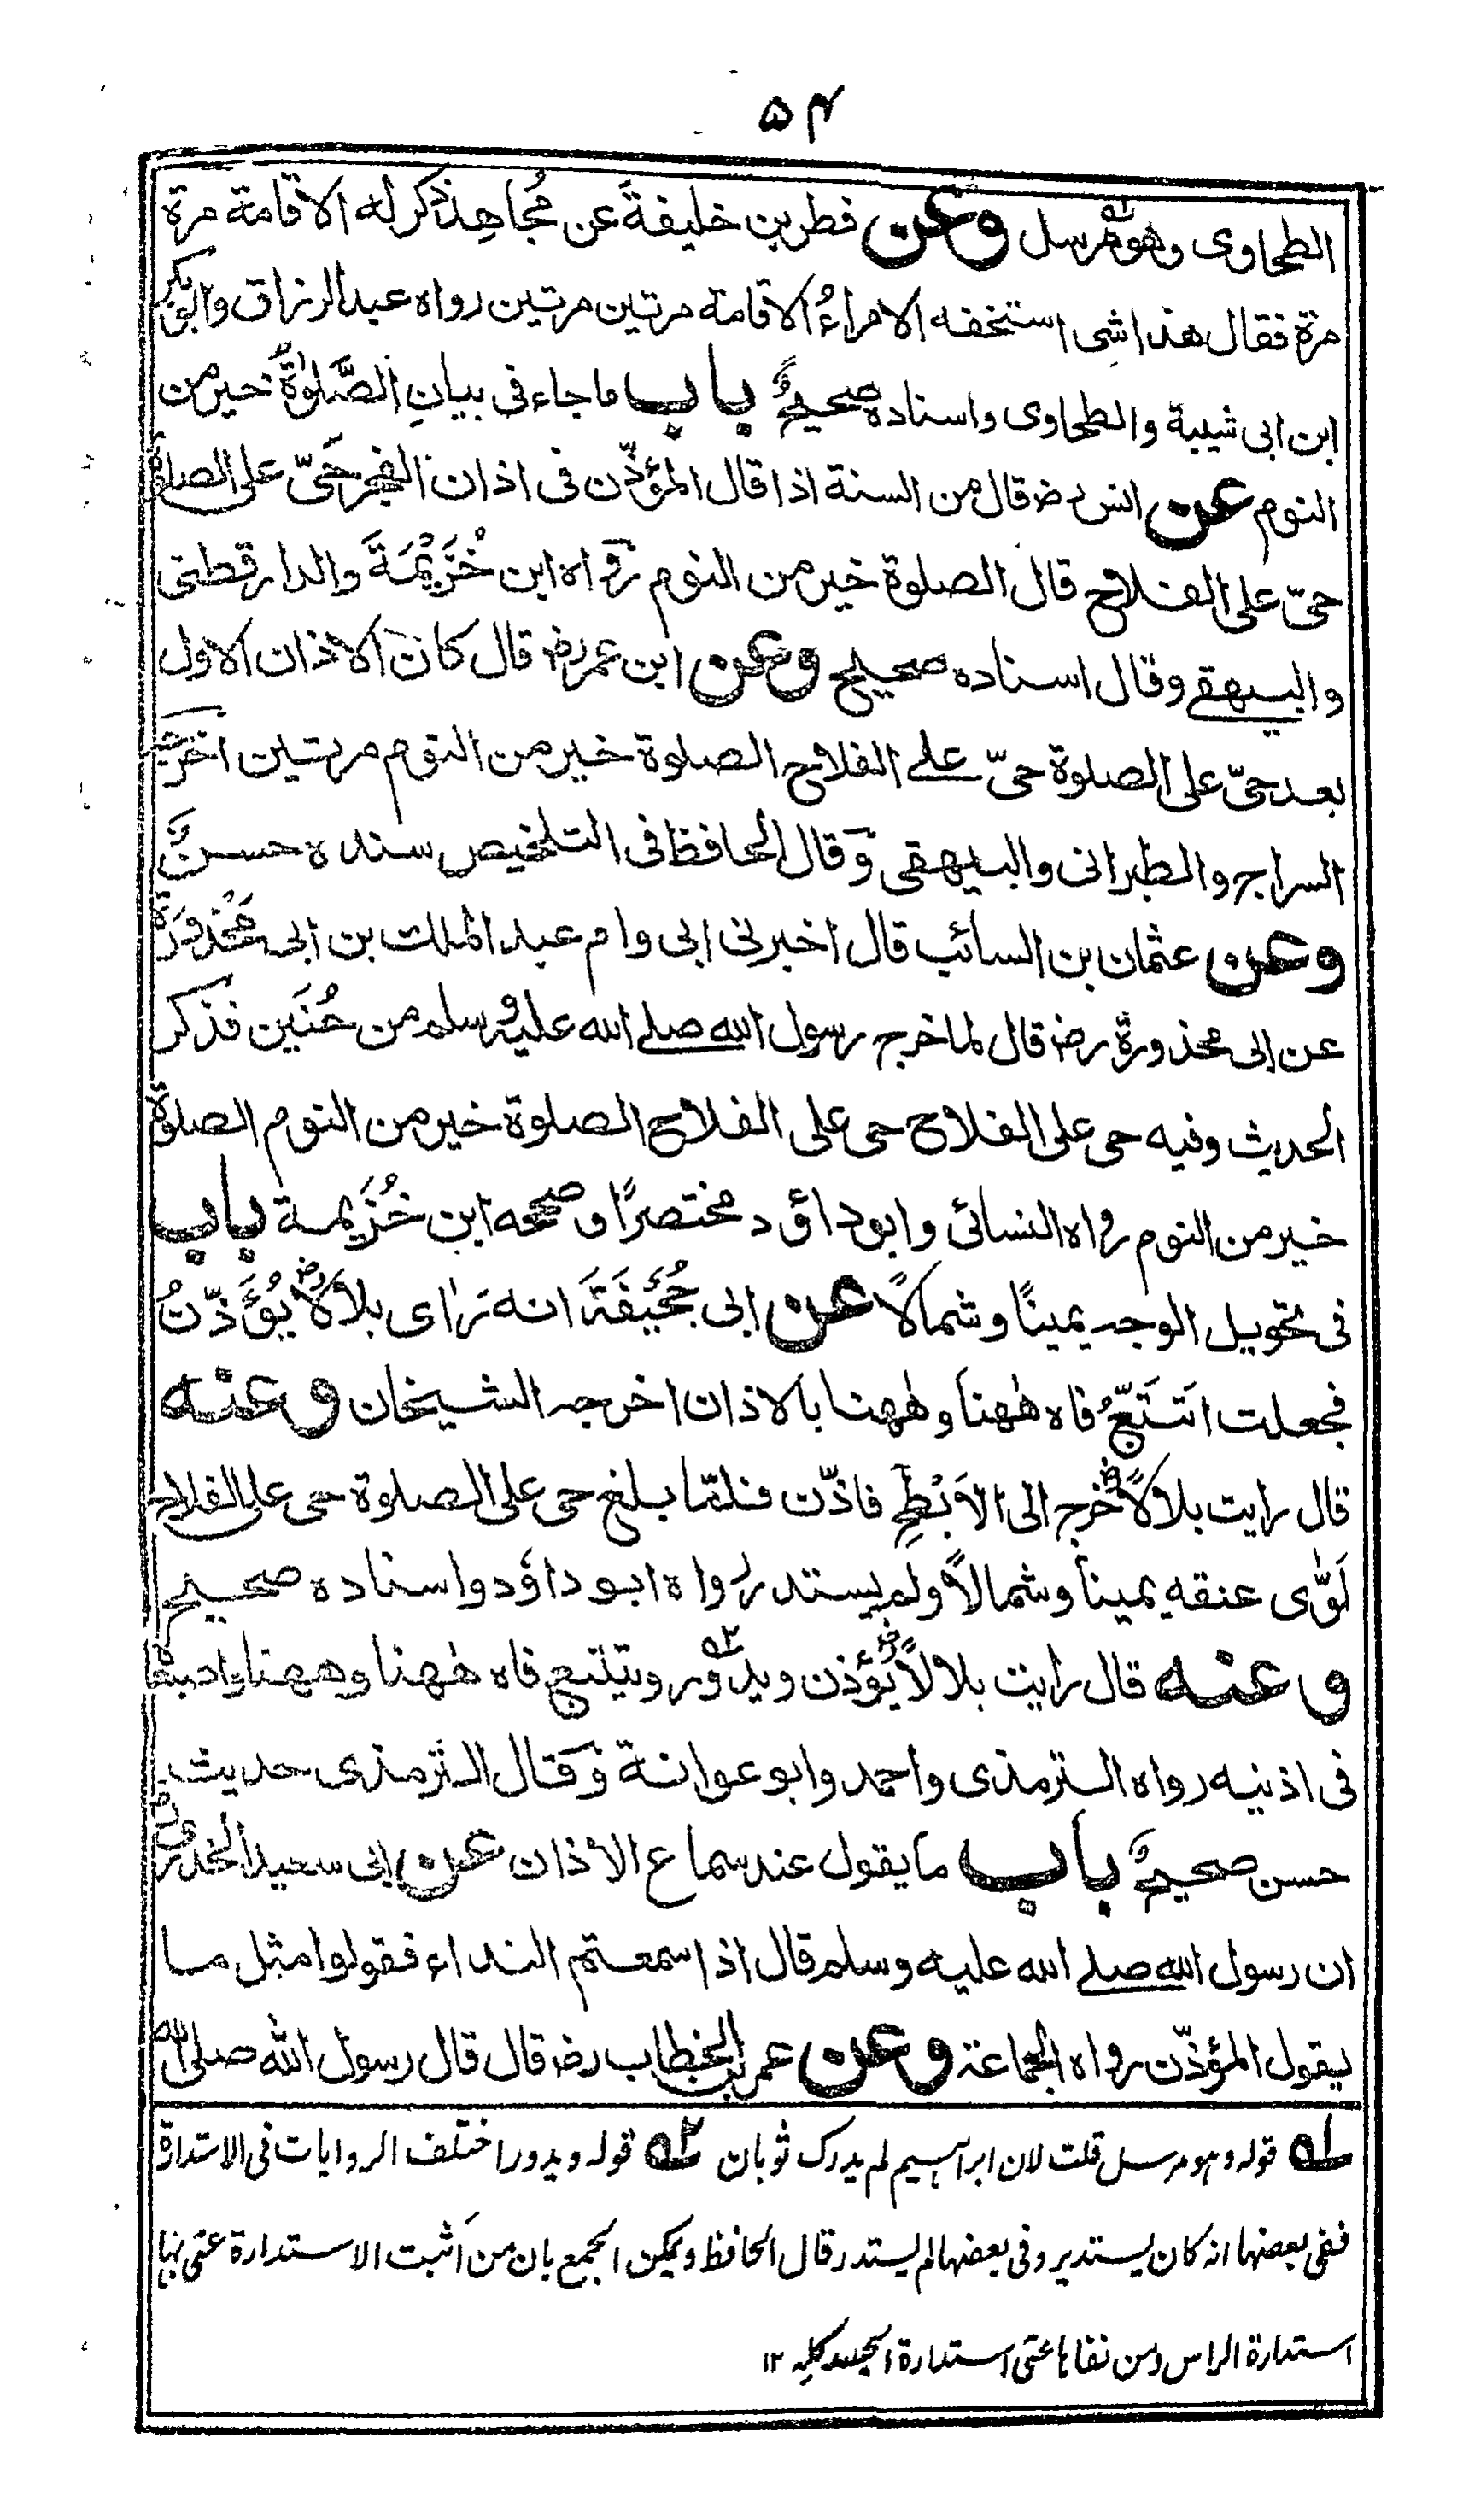 ۵۴
الطحاوی وهو مرسل وعن فطر بن خليفة عن مُجاهد ذكر له الاقامة مرة
مرة فقال هذا شی استخفه الامراءُ الاقامة مرتين مرتين رواه عبد الرزاق وابو بكر
ابن ابی شيبة والطحاوی واسناده صحيحٌ باب ما جاء فی بيانِ الصَّلوٰةُ خير من
النوم عن انس رضہ قال من السنة اذا قال المؤذّن فی اذان الفجر حَیّ علی الصلوة
حیّ علی الفلاح قال الصلوة خير من النوم رواه ابن خُزَيْمَةَ والدارقطنی
والبيهقے وقال اسناده صحيح وعن ابن عمر رضہ قال كان الاذان الاول
بعد حیّ علی الصلوة حیّ علے الفلاح الصلوة خير من النوم مرتين اخرجہ
السراج والطبرانی والبيهقی وَقال الحافظ فی التلخيص سنده حسنٌ
وعن عثمان بن السائب قال اخبرنی ابی وام عبد الملك بن ابی مَحْذُورَة
عن ابی محذورة رضہ قال لما خرج رسول الله صلے الله عليه وسلم من حُنَين فذكر
الحديث وفيه حی علی الفلاح حی علی الفلاح الصلوة خير من النوم الصلوة
خير من النوم رواه النسائی وابو داؤد مختصرًا وصححه ابن خُزَيمة باب
فی تحويل الوجه يمينًا وشمالًا عن ابی جُحَيفَةَ انه رَاٰی بلالًا رضہ يُؤَذّنُ
فجعلت اَتَتَبّعُ فاه هٰهنا وهٰهنا بالاذان اخرجہ الشيخان وعنه
قال رايت بلالًا رضہ خرج الی الاَبْطَحِ فاذّن فلمّا بلغ حی علی الصلوة حی علی الفلاح
لَوّٰی عنقه يمينا وشمالاً ولم يستدر رواه ابو داؤد واسناده صحيح
وعنه قال رايت بلالاً رضہ يُؤذن ويدور ويتتبع فاه هٰهنا وههنا واصبعاه
فی اذنيه رواه الترمذی واحمد وابو عوانة وَقال الترمذی حديث
حسن صحيحٌ باب ما يقول عند سماع الاذان عن ابی سعيد الخدری رضہ
ان رسول الله صلے الله عليه وسلم قال اذا سمعتم النداء فقولوا مثل ما
يقول المؤذّن رواه الجماعة وعن عمر بن الخطاب رضہ قال قال رسول الله صلی الله
۱ہ قوله وهو مرسل قلت لان ابراہیم لم يدرك ثوبان ۲ہ قوله ويدور اختلف الروايات فی الاستدارة
ففی بعضها انه كان يستدير وفی بعضها لم يستدر قال الحافظ ويمكن الجمع بان من اَثبت الاستدارة عنی بها
استدارة الراس ومن نفاها عنی استدارة الجسد كلہ ۱۲